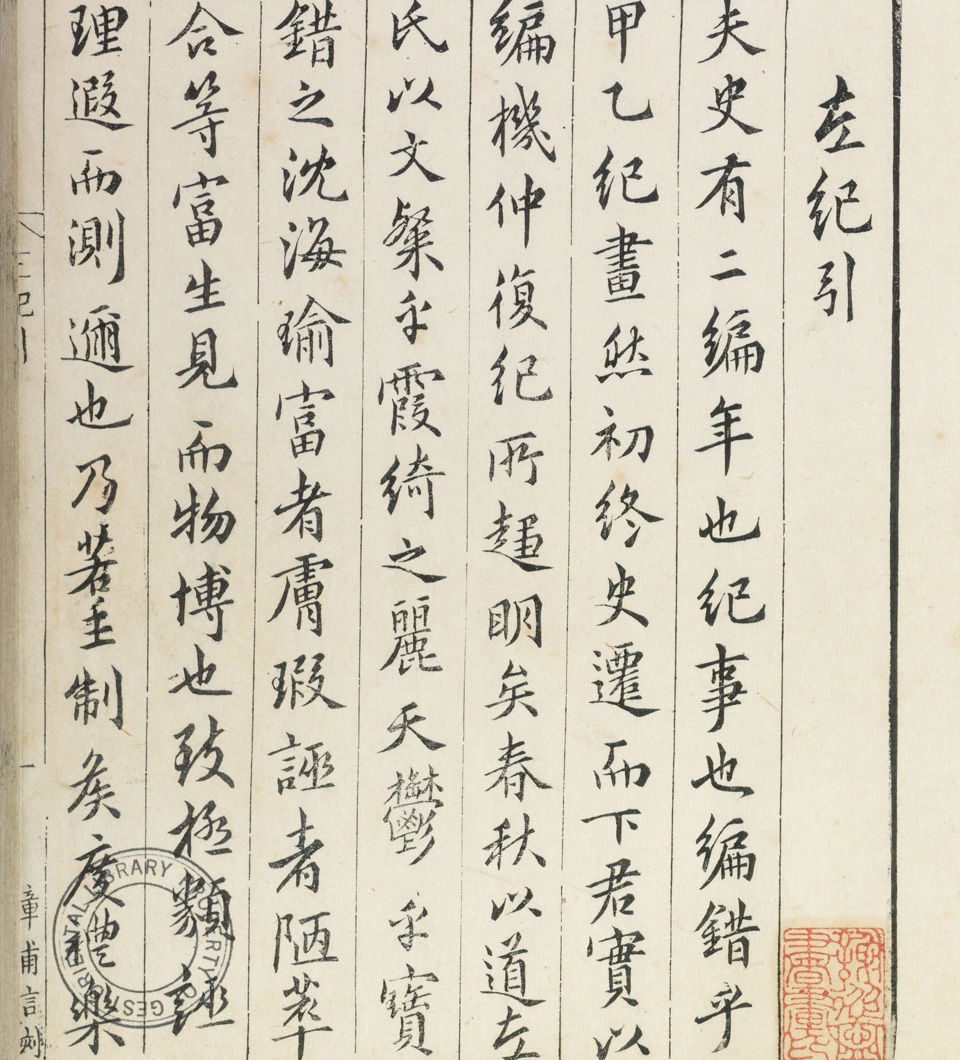 左紀引
夫史有二編年也紀事也編錯乎
甲乙紀畫然初終史遷而下君實以
編機仲復紀所趨明矣春秋以道左
氏以文粲乎霞綺之麗天鬱乎寶
錯之沈海瑜富者膚瑕誣者陋萃
合等富生見而物博也致極類謎
理遐而測邇也乃若垂制矦度禮樂
章甫言刻
GEST LIBRARY
PROPERTY OF